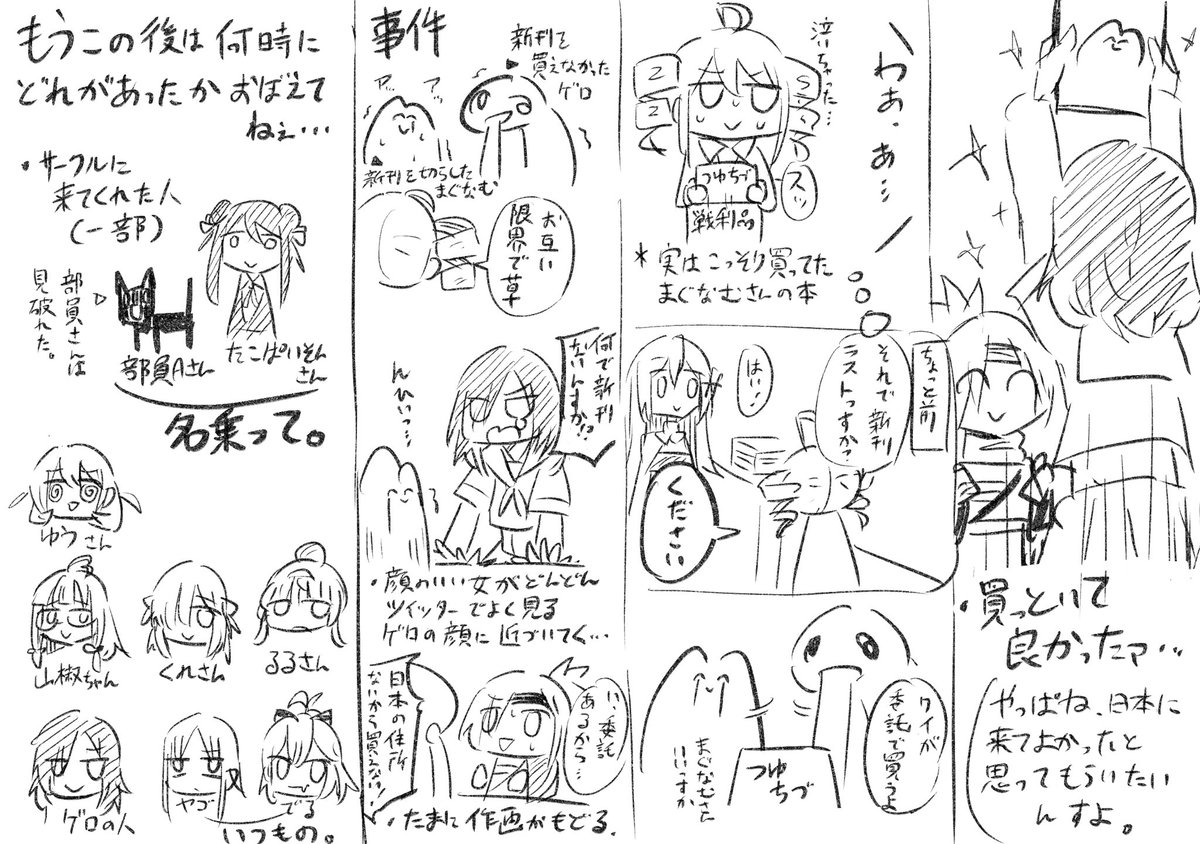 もうこの後は何時に
どれがあったかおぼえて
ねぇ…
・サークルに
来てくれた人
(一部)
部員さんは
見破れた。
部員Aさん
たこぱいそん
さん
名乗って。
ゆうさん
山椒ちゃん
くれさん
るるさん
ゲロの人
ヤゴ
でる
いつもの。
事件
新刊を
買えなかった
ゲロ
アッ
アッ
新刊を切らした
まぐなむ
お互い
限界で草
何で新刊
ないんすか!?
んひぃっ…
・顔のいい女がどんどん
ツイッターでよく見る
ゲロの顔に近づいてく…
日本の住所
ないから買えない!
い、委託
あるから…
・たまに作画がもどる。
泣いちゃった…
つゆちづ
戦利品
スッ
*実はこっそり買ってた
まぐなむさんの本
わぁ.ぁ…
ちょっと前
それで新刊
ラストっすか?
はい!
ください
ワイが
委託で買うよ
まぐなむさん
いいっすか
つゆ
ちづ
・買っといて
良かったァ…
やっぱね、日本に
来てよかったと
思ってもういたい
んすよ。